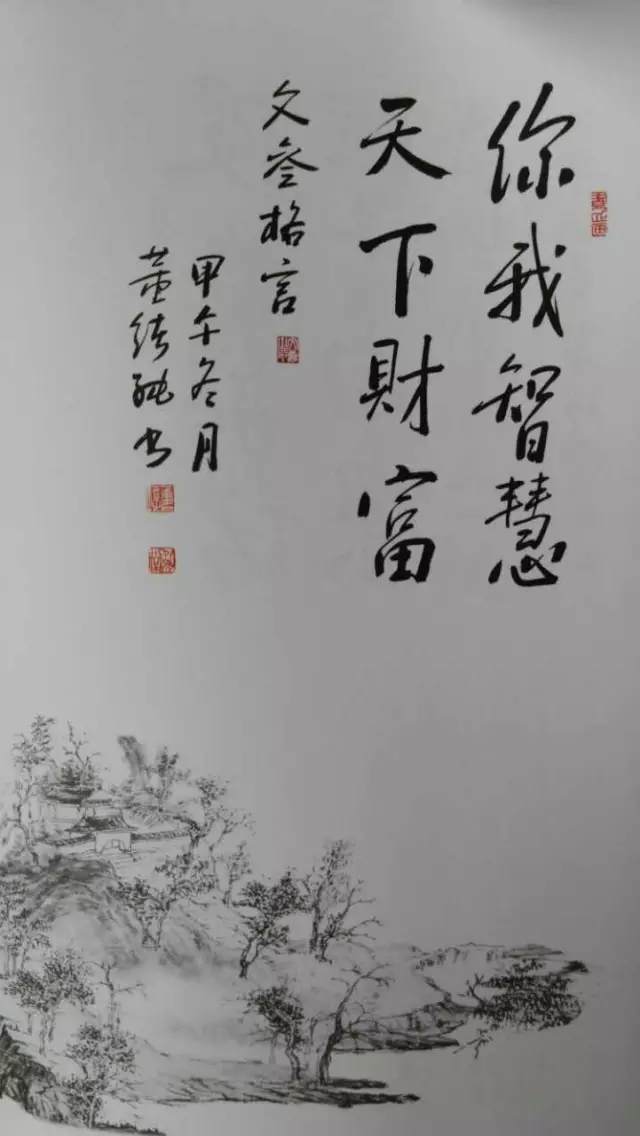 你我智慧
天下財富
文叁格言
甲午冬月
董绪驰书